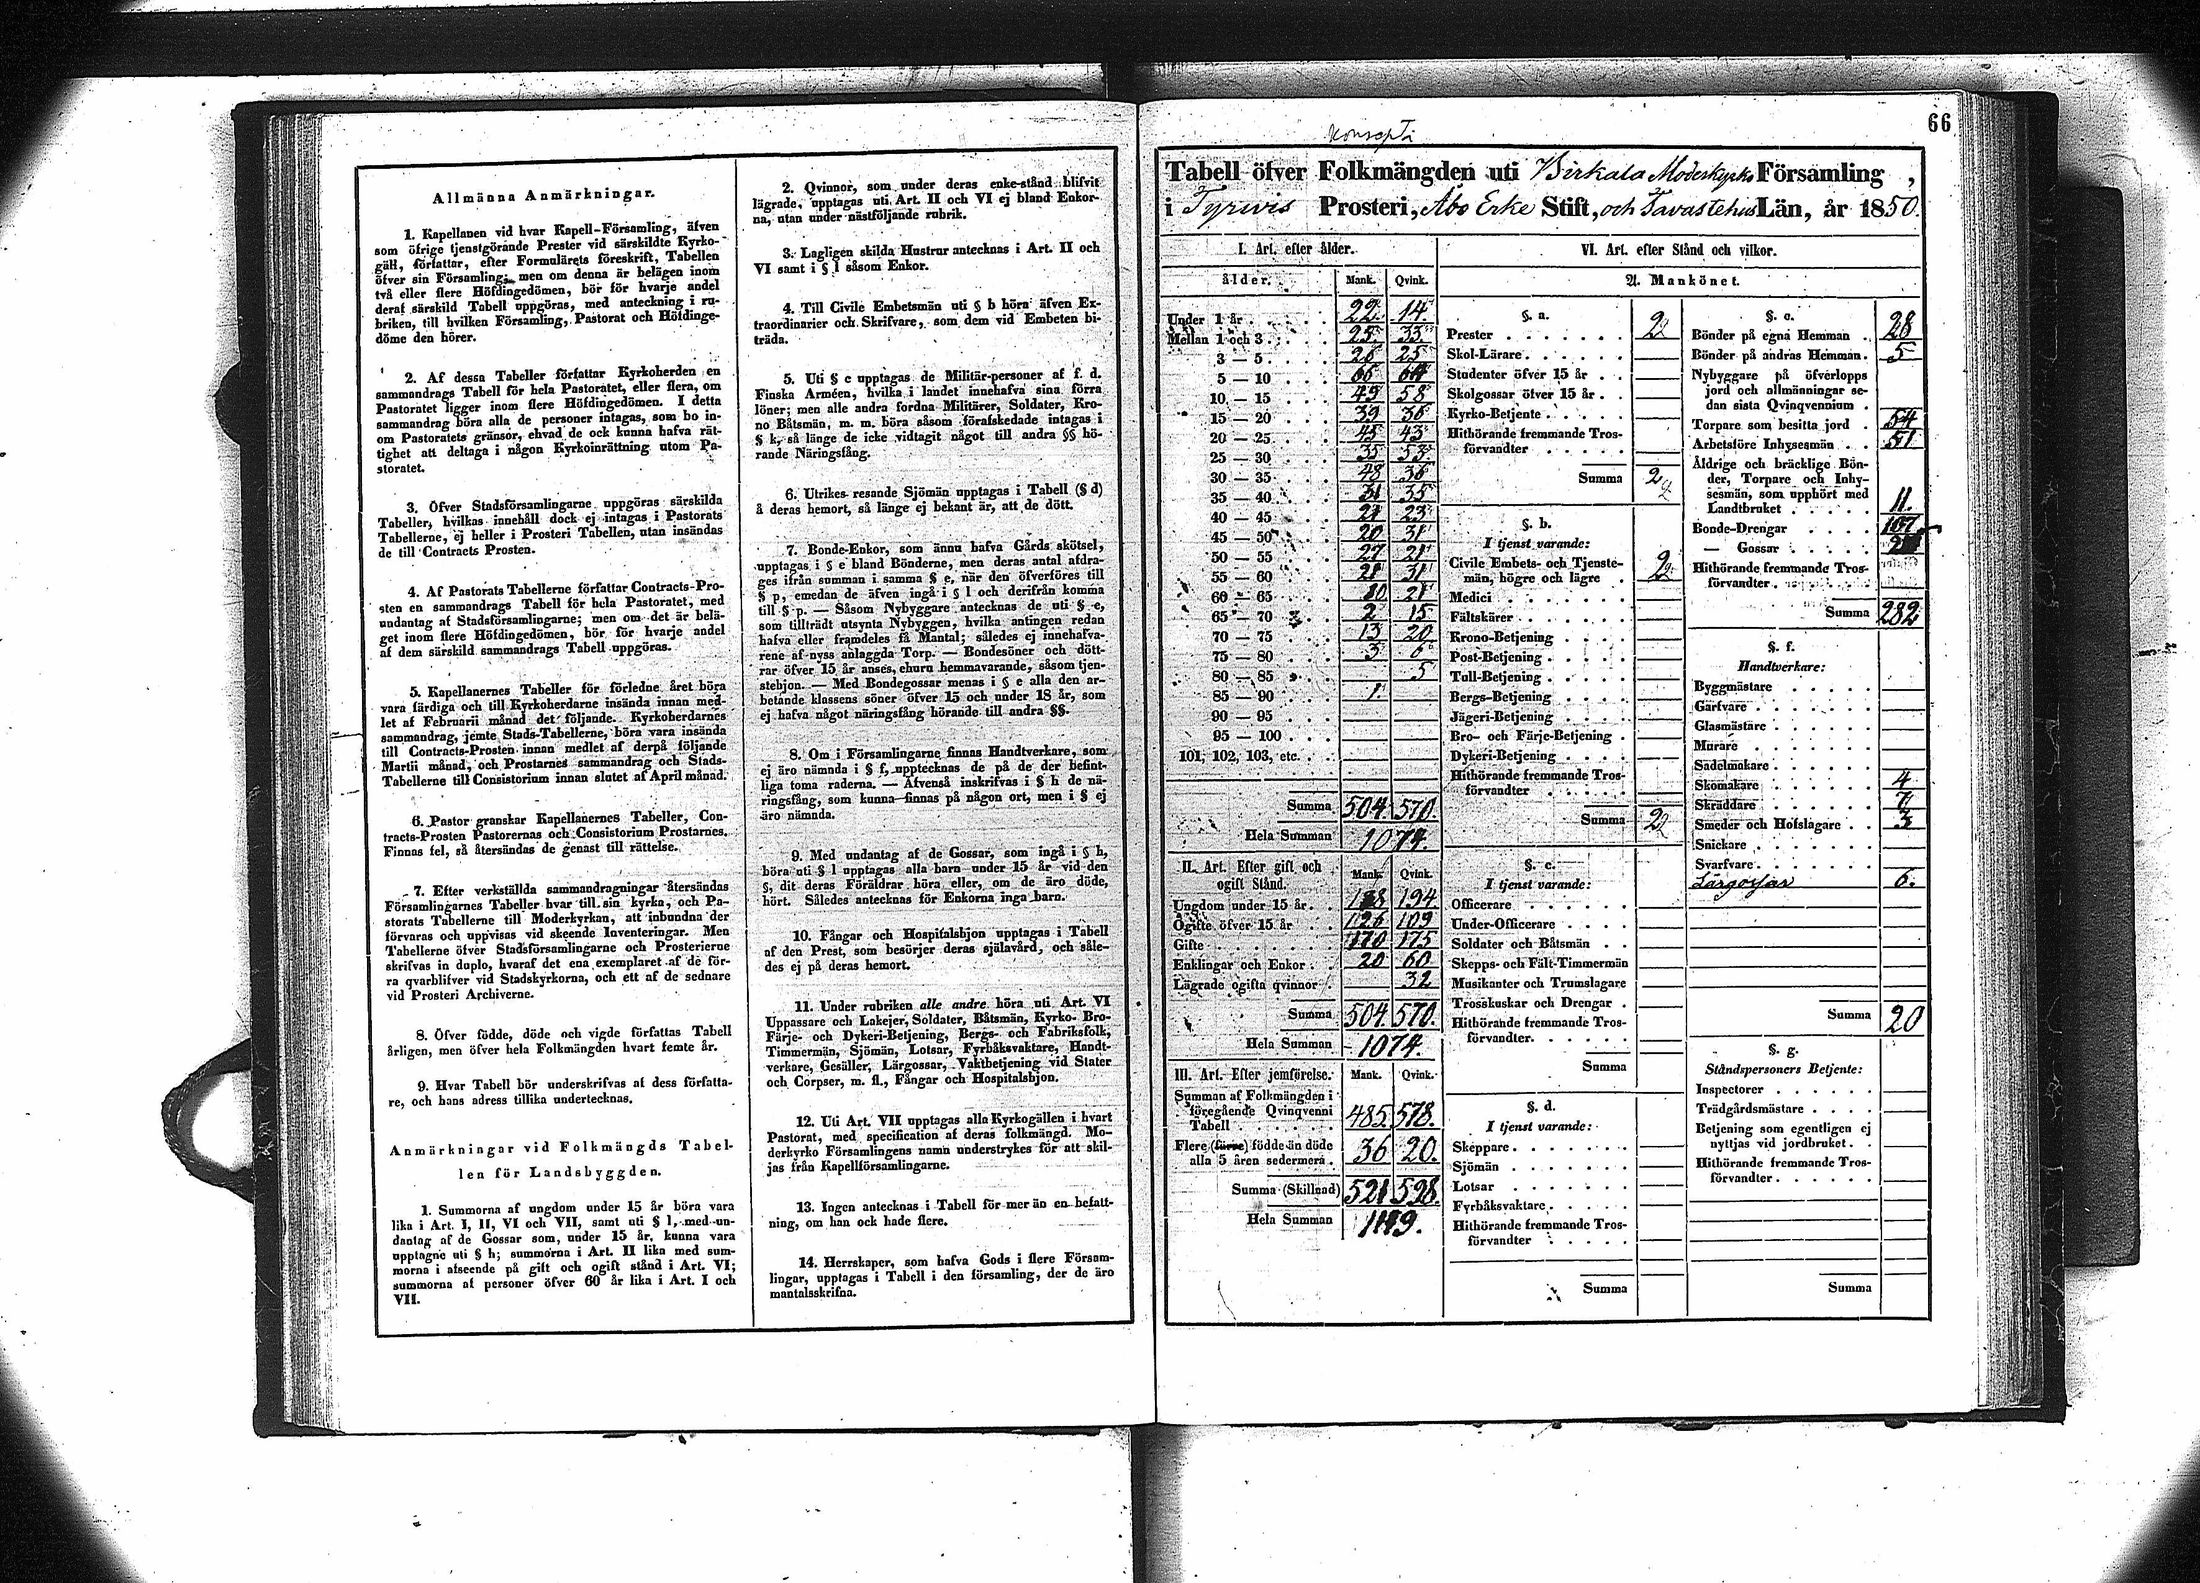 Allmänna Anmärkningar.
1. Kapellanen vid hvar Kapell-Församling, äfven
som öfrige tjenstgörande Prester vid särskildte Kyrko-
gäll, författar, efter Formulärets föreskrift, Tabellen
öfver sin Församling; men om denna är belägen inom
två eller flere Höfdingedömen, bör för hvarje andel
deraf särskild Tabell uppgöras, med anteckning i ru-
briken, till hvilken Församling, Pastorat och Höfdinge-
döme den hörer.
2. Af dessa Tabeller författar Kyrkoherden en
sammandrags Tabell för hela Pastoratet, eller flera, om
Pastoratet ligger inom flere Höfdingedömen. I detta
sammandrag böra alla de personer intagas, som bo in-
om Pastoratets gränsor, ehvad de ock kunna hafva rät-
tighet att deltaga i någon Kyrkoinrättning utom Pa-
storatet.
3. Öfver Stadsförsamlingarne uppgöras särskilda
Tabeller, hvilkas innehåll dock ej intagas i Pastorats
Tabellerne, ej heller i Prosteri Tabellen, utan insändas
de till Contracts Prosten.
4. Af Pastorats Tabellerne författar Contracts-Pro-
sten en sammandrags Tabell för hela Pastoratet, med
undantag af Stadsförsamlingarne; men om det är belä-
get inom flere Höfdingedömen, bör för hvarje andel
af dem särskild sammandrags Tabell uppgöras.
5. Kapellanernes Tabeller för förledne året böra
vara färdiga och till Kyrkoherdarne insända innan med-
let af Februarii månad det följande. Kyrkoherdarnes
sammandrag, jemte Stads-Tabellerne, böra vara insända
till Contracts-Prosten innan medlet af derpå följande
Martii månad, och Prostarnes sammandrag och Stads-
Tabellerne till Consistorium innan slutet af April månad.
6. Pastor granskar Kapellanernes Tabeller, Con-
tracts-Prosten Pastorernas och Consistorium Prostarnes.
Finnas fel, så återsändas de genast till rättelse.
7. Efter verkställda sammandragningar återsändas
Församlingarnes Tabeller hvar till sin kyrka, och Pa-
storats Tabellerne till Moderkyrkan, att inbundna der
förvaras och uppvisas vid skeende Inventeringar. Men
Tabellerne öfver Stadsförsamlingarne och Prosterierne
skrifvas in duplo, hvaraf det ena exemplaret af de för-
ra qvarblifver vid Stadskyrkorna, och ett af de sednare
vid Prosteri Archiverne.
8. Öfver födde, döde och vigde författas Tabell
årligen, men öfver hela Folkmängden hvart femte år.
9. Hvar Tabell bör underskrifvas af dess författa-
re, och hans adress tillika undertecknas.
Anmärkningar vid Folkmängds Tabel-
len för Landsbyggden.
1. Summorna af ungdom under 15 år böra vara
lika i Art. I, II, VI och VII, samt uti § l, med un-
dantag af de Gossar som, under 15 år, kunna vara
upptagne uti § h; summorna i Art. II lika med sum-
morna i afseende på gift och ogift stånd i Art. VI;
summorna af personer öfver 60 år lika i Art. I och
VII.
2. Qvinnor, som under deras enke-stånd blifvit
lägrade, upptagas uti Art. II och VI ej bland Enkor-
na, utan under nästföljande rubrik.
3. Lagligen skilda Hustrur antecknas i Art. II och
VI samt i § l såsom Enkor.
4. Till Civile Embetsmän uti § b höra äfven Ex-
traordinarier och Skrifvare, som dem vid Embeten bi-
träda.
5. Uti § c upptagas de Militär-personer af f. d.
Finska Arméen, hvilka i landet innehafva sina förra
löner; men alle andra fordna Militärer, Soldater, Kro-
no Båtsmän, m. m. böra såsom förafskedade intagas i
§ k, så länge de icke vidtagit något till andra §§ hö-
rande Näringsfång.
6. Utrikes resande Sjömän upptagas i Tabell (§ d)
å deras hemort, så länge ej bekant är, att de dött.
7. Bonde-Enkor, som ännu hafva Gårds skötsel,
upptagas i § e bland Bönderne, men deras antal afdra-
ges ifrån summan i samma § e, när den öfverföres till
§ p, emedan de äfven ingå i § l och derifrån komma
till § p. — Såsom Nybyggare antecknas de uti § e,
som tillträdt utsynta Nybyggen, hvilka antingen redan
hafva eller framdeles få Mantal; således ej innehafva-
rene af nyss anlaggda Torp. — Bondesöner och dött-
rar öfver 15 år anses, ehuru hemmavarande, såsom tjen-
stehjon. — Med Bondegossar menas i § e alla den ar-
betande klassens söner öfver 15 och under 18 år, som
ej hafva något näringsfång hörande till andra §§.
8. Om i Församlingarne finnas Handtverkare, som
ej äro nämnda i § f, upptecknas de på de der befint-
liga toma raderna. — Äfvenså inskrifvas i § h de nä-
ringsfång, som kunna finnas på någon ort, men i § ej
äro nämnda.
9. Med undantag af de Gossar, som ingå i § h,
böra uti § l upptagas alla barn under 15 år vid den
§, dit deras Föräldrar höra eller, om de äro döde,
hört. Således antecknas för Enkorna inga barn.
10. Fångar och Hospitalshjon upptagas i Tabell
af den Prest, som besörjer deras själavård, och såle-
des ej på deras hemort.
11. Under rubriken alle andre höra uti Art. VI
Uppassare och Lakejer, Soldater, Båtsmän, Kyrko- Bro-
Färje- och Dykeri-Betjening, Bergs- och Fabriksfolk,
Timmermän, Sjömän, Lotsar, Fyrbåksvaktare, Handt-
verkare, Gesäller, Lärgossar, Vaktbetjening vid Stater
och Corpser, m. fl., Fångar och Hospitalshjon.
12. Uti Art. VII upptagas alla Kyrkogällen i hvart
Pastorat, med specification af deras folkmängd. Mo-
derkyrko Församlingens namn understrykes för att skil-
jas från Kapellförsamlingarne.
13. Ingen antecknas i Tabell för mer än en befatt-
ning, om han ock hade flere.
14. Herrskaper, som hafva Gods i flere Försam-
lingar, upptagas i Tabell i den församling, der de äro
mantalsskrifna.
66
Konsepti
Tabell öfver Folkmängden uti Birkala Moderkyrko Församling,
i Tyrvis Prosteri, Åbo Erke Stift, och Tavastehus Län, år 1850.
I. Art. efter ålder.
ålder. Mank. Qvink.
Under 1 år 22 14
Mellan 1 och 3 25 33
3 — 5 26 25
5 — 10 65 64
10 — 15 49 58
15 — 20 39 36
20 — 25 45 43
25 — 30 35 53
30 — 35 48 36
35 — 40 31 35
40 — 45 23
45 — 50 20 31
50 — 55 27 21
55 — 60 31
60 — 65 21
65 — 70 2 15
70 — 75 13 20
75 — 80 3 6
80 — 85 5
85 — 90 1
90 — 95
95 — 100
101, 102, 103, etc.
Summa 504 570
Hela Summan 1074
II. Art. Efter gift och
ogift Stånd. Mank. Qvink.
Ungdom under 15 år 188 194
Ogifte öfver 15 år 126 109
Gifte 170 175
Enklingar och Enkor 20 60
Lägrade ogifta qvinnor 32
Summa 504 570
Hela Summan 1074
III. Art. Efter jemförelse. Mank. Qvink.
Summan af Folkmängden i
föregående Qvinqvenni
Tabell 485 578
Flere (färre) födde än döde
alla 5 åren sedermera 36 20
Summa (Skillnad) 521 598
Hela Summan 1119
VI. Art. efter Stånd och vilkor.
A. Mankönet.
§. a.
Prester 2
Skol-Lärare
Studenter öfver 15 år
Skolgossar öfver 15 år
Kyrko-Betjente
Hithörande fremmande Tros-
förvandter
Summa 2
§. b.
I tjenst varande:
Civile Embets- och Tjenste-
män, högre och lägre 2
Medici
Fältskärer
Krono-Betjening
Post-Betjening
Tull-Betjening
Bergs-Betjening
Jägeri-Betjening
Bro- och Färje-Betjening
Dykeri-Betjening
Hithörande fremmande Tros-
förvandter
Summa 2
§. c.
I tjenst varande:
Officerare
Under-Officerare
Soldater och Båtsmän
Skepps- och Fält-Timmermän
Musikanter och Trumslagare
Trosskuskar och Drengar
Hithörande fremmande Tros-
förvandter
Summa
§. d.
I tjenst varande:
Skeppare
Sjömän
Lotsar
Fyrbåksvaktare
Hithörande fremmande Tros-
förvandter
Summa
§. e.
Bönder på egna Hemman 28
Bönder på andras Hemman 5
Nybyggare på öfverlopps
jord och allmänningar se-
dan sista Qvinqvennium
Torpare som besitta jord 54
Arbetsföre Inhysesmän 51
Åldrige och bräcklige Bön-
der, Torpare och Inhy-
sesmän, som upphört med
Landtbruket 11
Bonde-Drengar 107
— Gossar
Hithörande fremmande Tros-
förvandter
Summa 282
§. f.
Handtverkare:
Byggmästare
Garfvare
Glasmästare
Murare
Sadelmakare
Skomakare 4
Skräddare 7
Smeder och Hofslagare 3
Snickare
Svarfvare
Lärgossar 6
Summa 20
§. g.
Ståndspersoners Betjente:
Inspectorer
Trädgårdsmästare
Betjening som egentligen ej
nyttjas vid jordbruket
Hithörande fremmande Tros-
förvandter
Summa